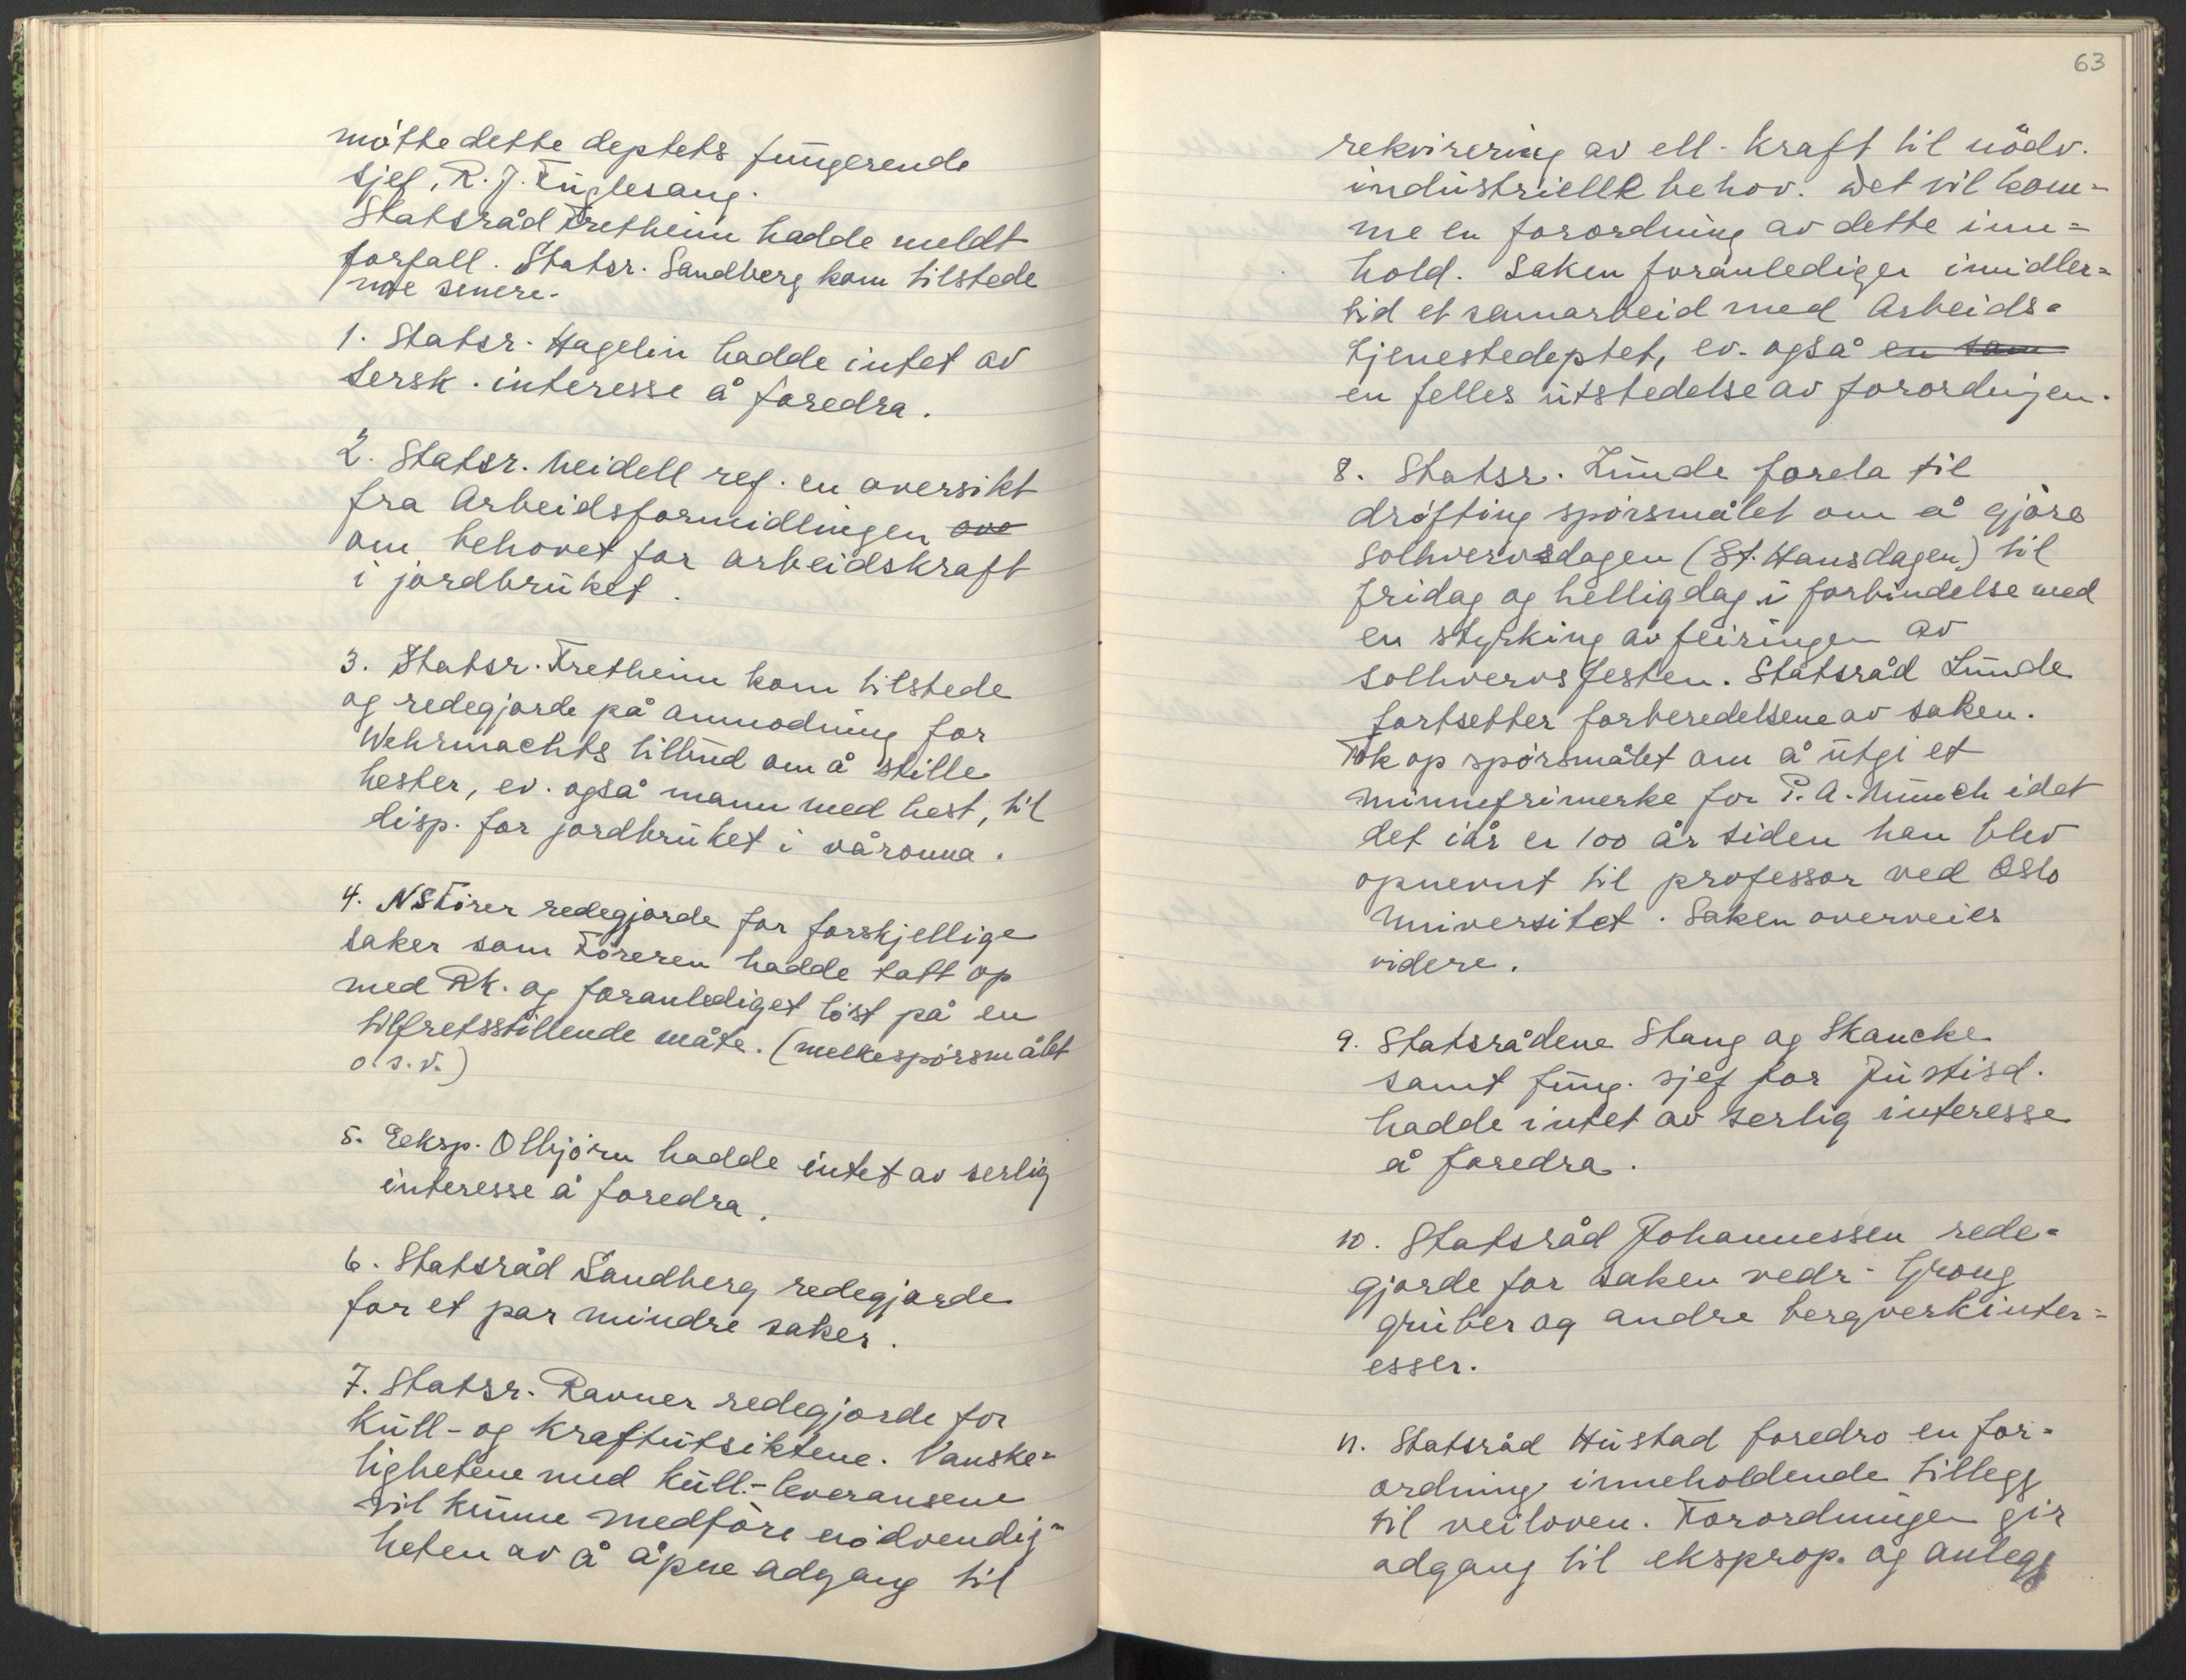 møtte dette deptets fungerende
sjef, R. J. Fuglesang.
Statsråd Fretheim hadde meldt
forfall. Statsr. Sandberg kom tilstede
noe senere.
1. Statsr. Hagelin hadde intet av
sersk. interesse å foredra.
2. Statsr. Meidell ref. en oversikt
fra Arbeidsformidlingen ove
om behovet for arbeidskraft
i jordbruket.
3. Statsr. Fretheim kom tilstede
og redegjorde på anmodning for
Wehrmachts tilbud om å stille
hester, ev. også mann med hest, til
disp. for jordbruket i våronna.
4. NSFører redegjorde for forskjellige
saker som Føreren hadde tatt op
med RK. og foranlediget løst på en
tilfretsstillende måte. (melkespørsmålet
o.s.v.)
5. Eeksp. Olbjørn hadde intet av serlig
interesse å foredra.
6. Statsråd Sandberg redegjorde
for et par mindre saker.
7. Statsr. Ravner redegjorde for
Kull- og Kraftutsiktene. Vanske=
lighetene med kull.-leveransene
vil kunne medføre nødvendig=
heten av å åpne adgang til
63
rekvirering av ell. kraft til nödv.
industrielle behov. Det vil kom=
me en forordning av dette inn=
hold. Saken foranlediger imidler=
tid et samarbeid med Arbeids=
tjenestedeptet, ev. også en sam
en felles utstedelse av forordnijen.
8. Statsr. Lunde forela til
drøfting spørsmålet om å gjøre
solhvervsdagen (St. Hansdagen) til
fridag og helligdag i forbindelse med
en styrking av feiringen av
solhvervsfesten. Statsråd Lunde
fortsetter forberedelsene av saken.
Tok op spørsmålet om å utgi et
minnefrimerke for P. A. Munch idet
det iår er 100 år siden han blev
opnevnt til professor ved Oslo
Universitet. Saken overveies
videre.
9. Statsrådene Stang og Skancke
samt fung. sjef for Justisd.
hadde intet av serlig interesse
å foredra.
10. Statsråd Johannessen rede=
gjorde for saken vedr. Grong
gruber og andre bergverkinter=
esser.
11. Statsråd Hustad foredro en for=
ordning inneholdende tillegg
til veiloven. Forordningen gir
adgang til eksprop. og anlegg